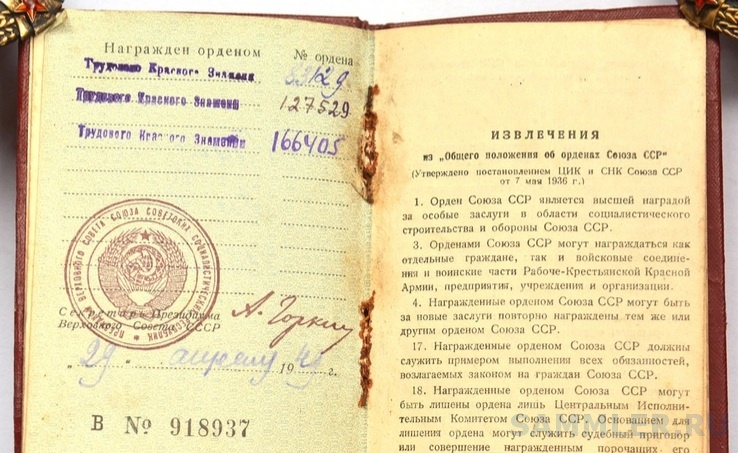 Награжден орденом
№ ордена
Трудового Красного Знамени 83129
Трудового Красного Знамени 127529
Трудового Красного Знамени 166405
ВЕРХОВНОГО СОВЕТА СОЮЗА СОВЕТСКИХ СОЦИАЛИСТИЧЕСКИХ
Секретарь Президиума
Верховного Совета СССР
А. Горкин
"29" апреля 1949 г.
В № 918937
ИЗВЛЕЧЕНИЯ
из „Общего положения об орденах Союза ССР"
(Утверждено постановлением ЦИК и СНК Союза ССР
от 7 мая 1936 г.)
1. Орден Союза ССР является высшей наградой
за особые заслуги в области социалистического
строительства и обороны Союза ССР.
3. Орденами Союза ССР могут награждаться как
отдельные граждане, так и войсковые соедине-
ния и воинские части Рабоче-Крестьянской Красной
Армии, предприятия, учреждения и организации.
4. Награжденные орденом Союза ССР могут быть
за новые заслуги повторно награждены тем же или
другим орденом Союза ССР.
17. Награжденные орденом Союза ССР должны
служить примером выполнения всех обязанностей,
возлагаемых законом на граждан Союза ССР.
18. Награжденные орденом Союза ССР могут
быть лишены ордена лишь Центральным Исполни-
тельным Комитетом Союза ССР. Основанием для
лишения ордена могут служить судебный приговор
или совершение награжденным порочащих его
SAMMLER.RU